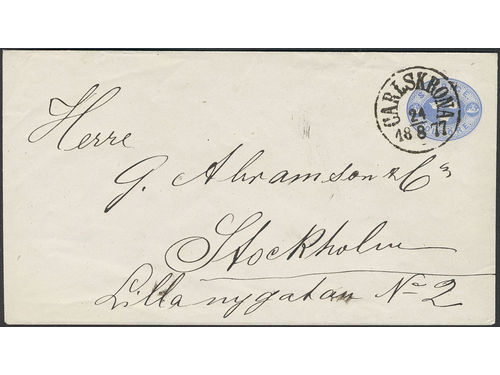 CARLSKRONA
24
18 8 77
Herre
G. Abramson & Co
Stockholm
Lilla nygatan No 2